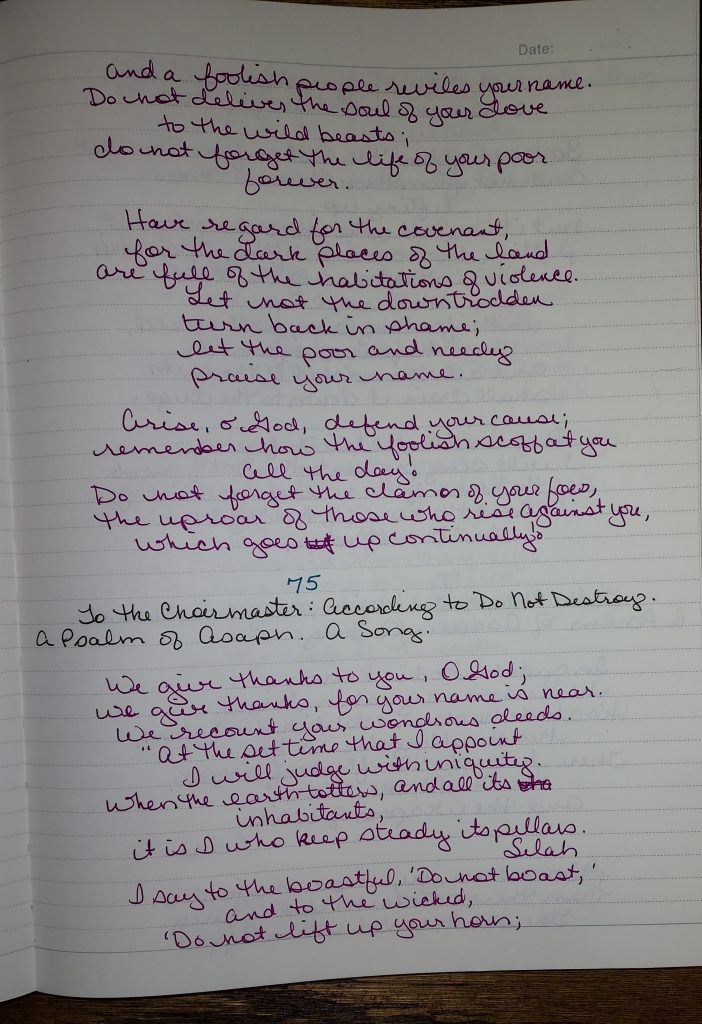 Date:
and a foolish people reviles your name.
Do not deliver the soul of your dove
to the wild beasts;
do not forget the life of your poor
forever.
Have regard for the covenant,
for the dark places of the land
are full of the habitations of violence.
Let not the downtrodden
turn back in shame;
let the poor and needy
praise your name.
Arise, o God, defend your cause;
remember how the foolish scoff at you
all the day!
Do not forget the clamor of your foes,
the uproar of those who rise against you,
which goes up continually!
75
To the Choirmaster: According to Do Not Destroy.
A Psalm of Asaph. A Song.
We give thanks to you, O God;
we give thanks, for your name is near.
We recount your wondrous deeds.
"At the set time that I appoint
I will judge with iniquity.
When the earth totters, and all its
inhabitants,
it is I who keep steady its pillars.
Selah
I say to the boastful, 'Do not boast,'
and to the wicked,
'Do not lift up your horn;